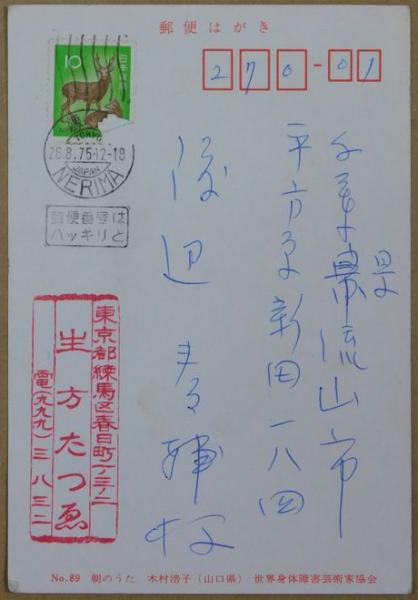 郵便はがき
10
日本郵便
NIPPON
270-01
千葉県流山市
平方字新田一八四
渡辺 秀輔 様
練馬
26.8.75.12-18
JAPAN
NERIMA
郵便番号は
ハッキリと
東京都練馬区春日町一ノ三ノ二
生方たつゑ
電(九九九)三八三二
No.89 朝のうた 木村浩子(山口県) 世界身体障害芸術家協会